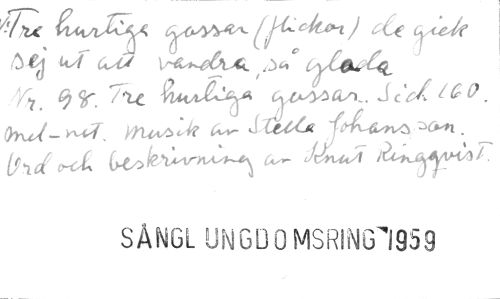 V: Tre hurtiga gossar (flickor) de gick
sej ut att vandra, så glada
Nr. 98. Tre hurtiga gossar. Sid. 160.
mel-not. Musik av Stella Johansson.
Ord och beskrivning av Knut Ringqvist.
SÅNGL UNGDOMSRING 1959